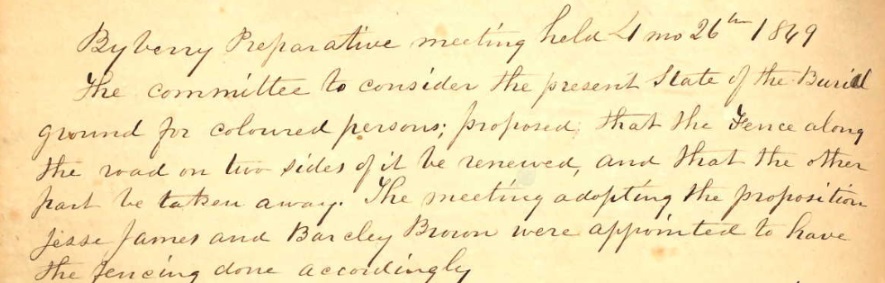 Byberry Preparative meeting held 4 mo 26th 1849
The committee to consider the present State of the Burial
ground for coloured persons; proposed, that the Fence along
the road on two sides of it be renewed, and that the other
part be taken away. The meeting adopting the proposition
Jesse James and Barcley Brown were appointed to have
the fencing done accordingly